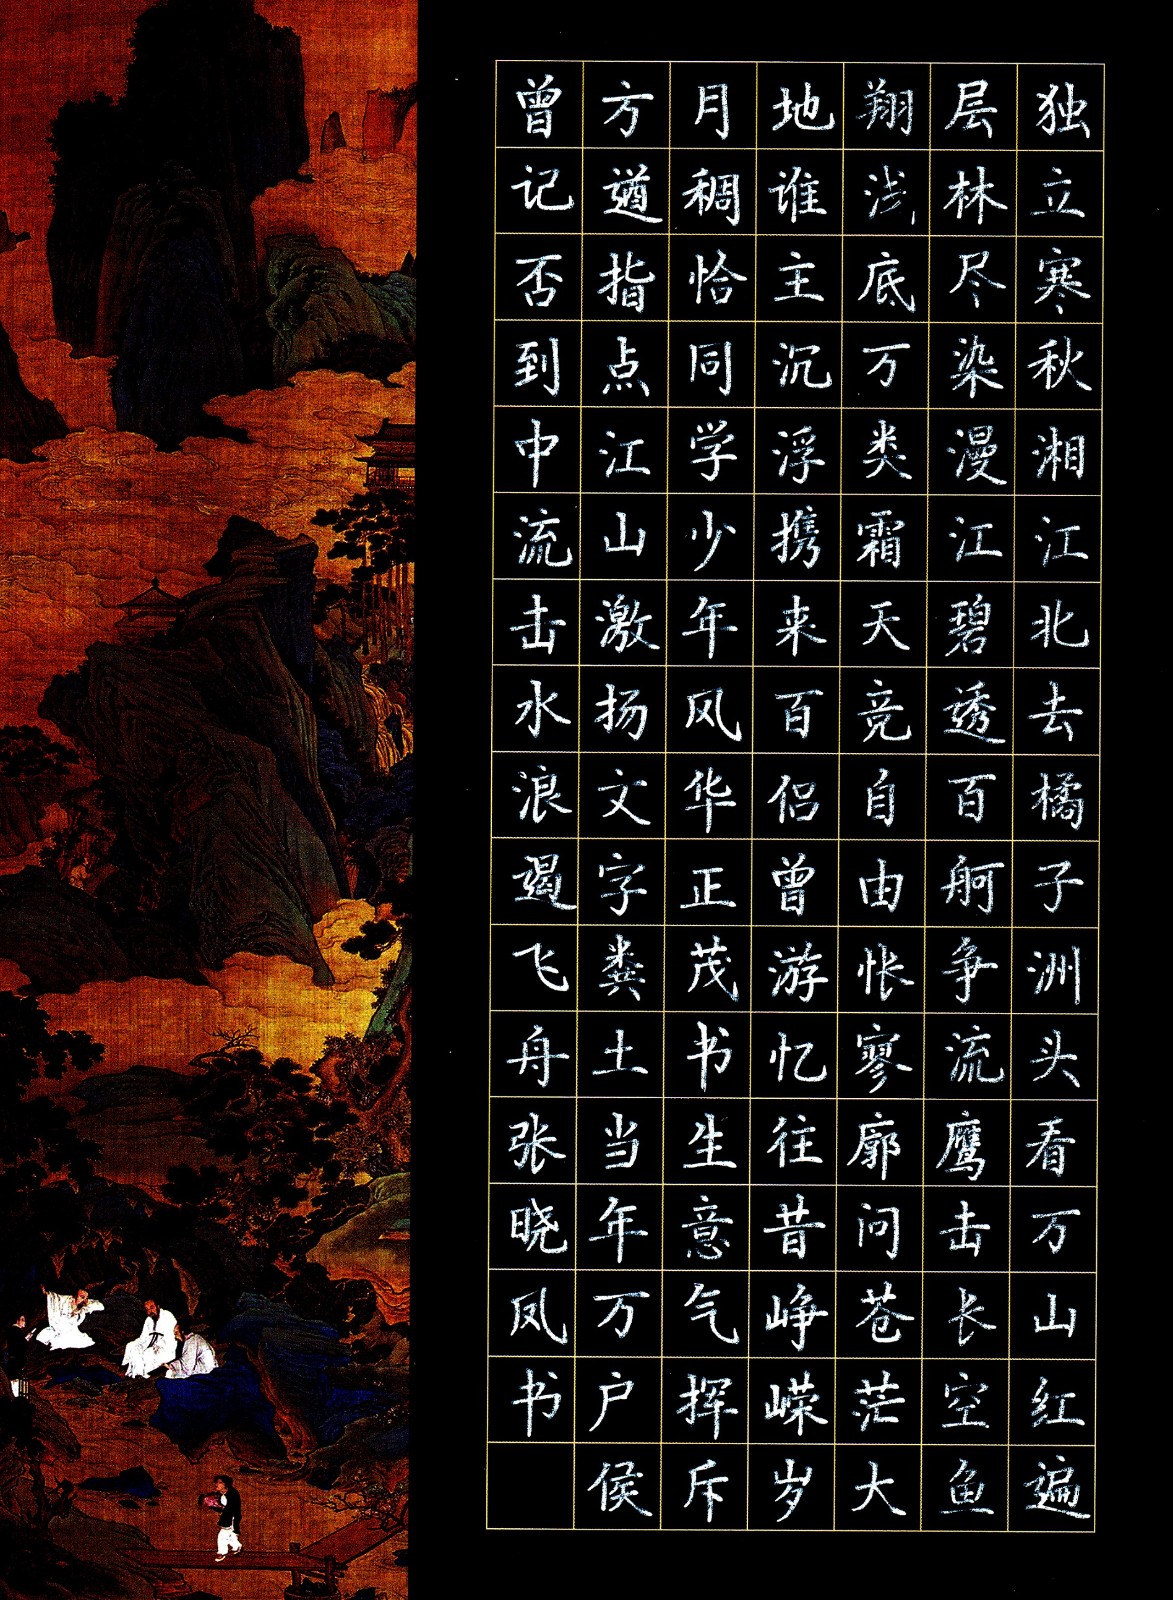 独立寒秋湘江北去橘子洲头看万山红遍
层林尽染漫江碧透百舸争流鹰击长空鱼
翔浅底万类霜天竞自由怅寥廓问苍茫大
地谁主沉浮携来百侣曾游忆往昔峥嵘岁
月稠恰同学少年风华正茂书生意气挥斥
方遒指点江山激扬文字粪土当年万户侯
曾记否到中流击水浪遏飞舟张晓凤书